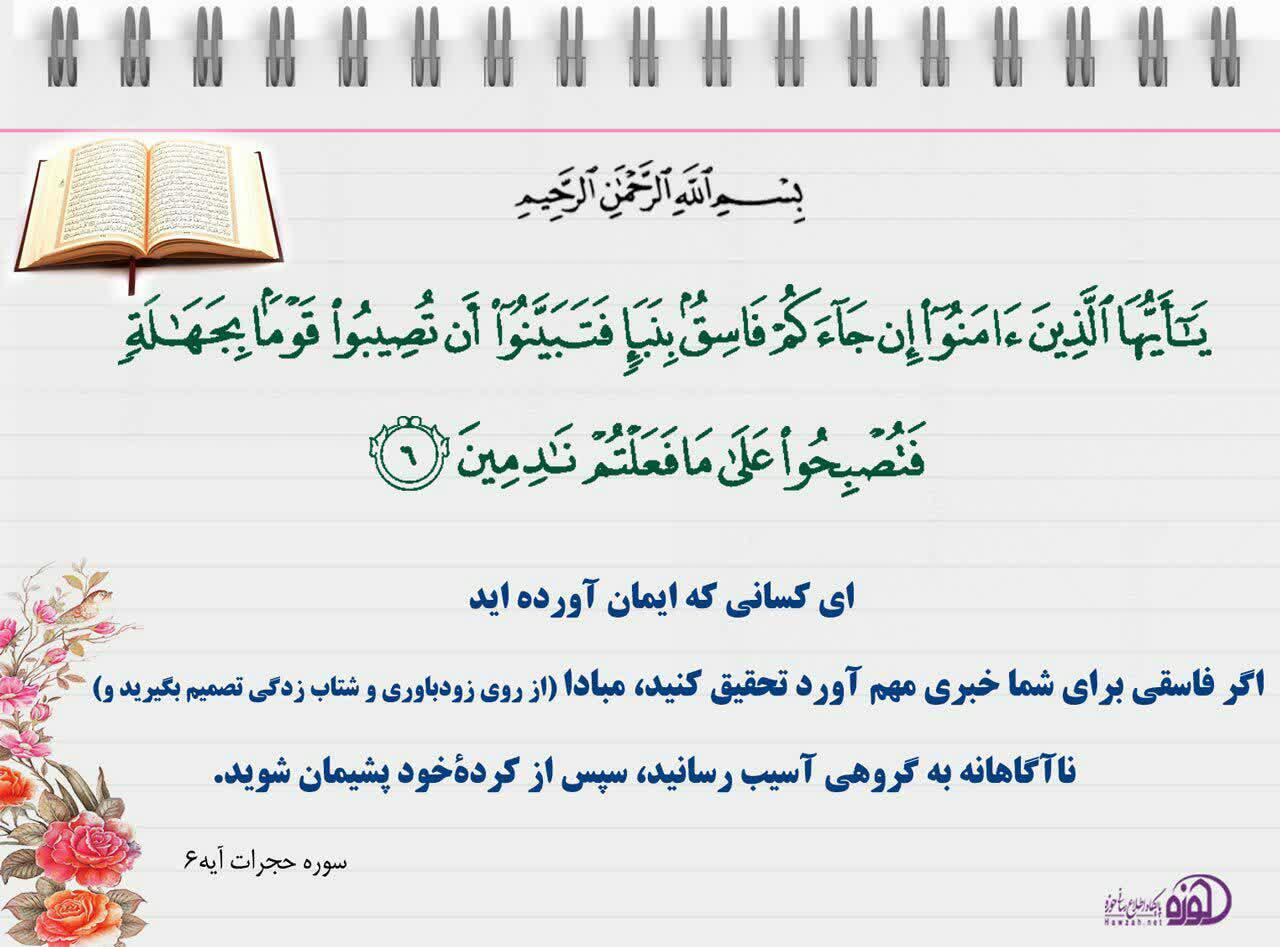 بِسْمِ ٱللَّهِ ٱلرَّحْمَٰنِ ٱلرَّحِيمِ
يَـٰٓأَيُّهَا ٱلَّذِينَ ءَامَنُوٓا۟ إِن جَآءَكُمْ فَاسِقٌۢ بِنَبَإٍ فَتَبَيَّنُوٓا۟ أَن تُصِيبُوا۟ قَوْمًۢا بِجَهَـٰلَةٍ
فَتُصْبِحُوا۟ عَلَىٰ مَا فَعَلْتُمْ نَـٰدِمِينَ ٦
ای کسانی که ایمان آورده اید
اگر فاسقی برای شما خبری مهم آورد تحقیق کنید، مبادا (از روی زودباوری و شتاب زدگی تصمیم بگیرید و)
ناآگاهانه به گروهی آسیب رسانید، سپس از کردۀخود پشیمان شوید.
سوره حجرات آیه۶
حوزه پایگاه اطلاع رسانی حوزه
Hawzah.net